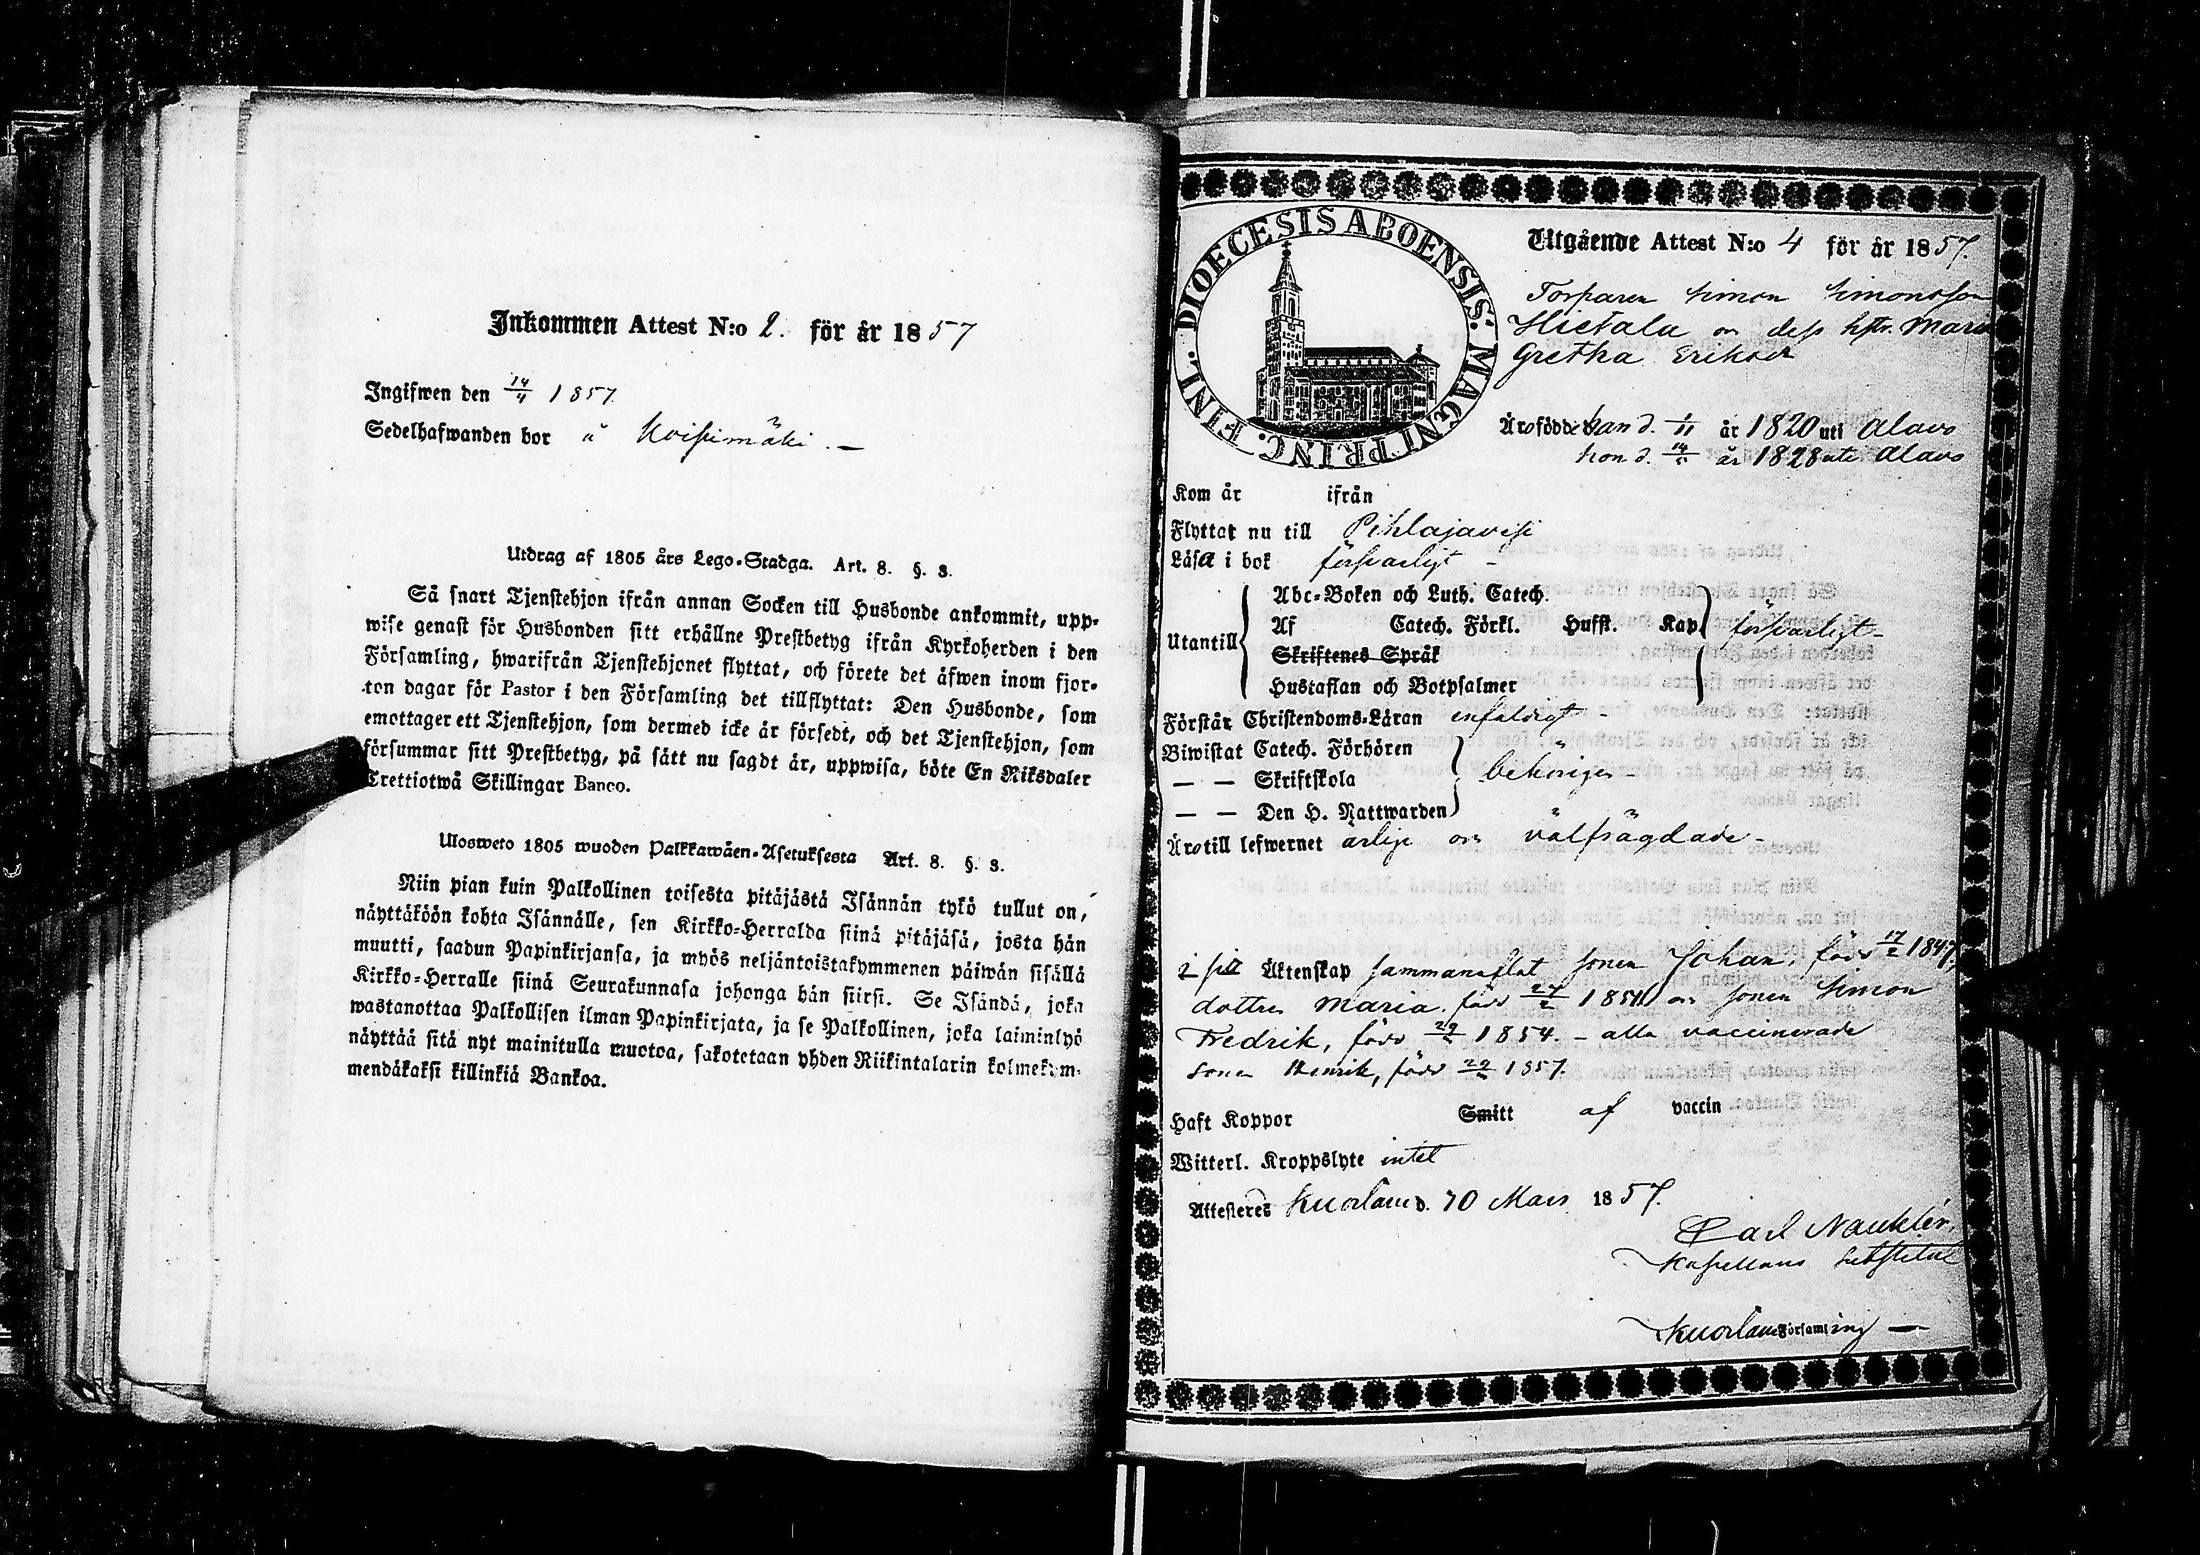 Inkommen Attest N:o 2. för år 1857
Ingifwen den 14/4 1857.
Sedelhafwanden bor å Koisimäki. —
Utdrag af 1805 års Lego-Stadga. Art. 8. §. 3.
Så snart Tjenstehjon ifrån annan Socken till Husbonde ankommit, upp-
wise genast för Husbonden sitt erhållne Prestbetyg ifrån Kyrkoherden i den
Församling, hwarifrån Tjenstehjonet flyttat, och förete det äfwen inom fjor-
ton dagar för Pastor i den Församling det tillflyttat: Den Husbonde, som
emottager ett Tjenstehjon, som dermed icke är försedt, och det Tjenstehjon, som
försummar sitt Prestbetyg, på sätt nu sagdt är, uppwisa, böte En Riksdaler
Trettiotwå Skillingar Banco.
Ulosweto 1805 wuoden Palkkawäen-Asetuksesta Art. 8. §. 3.
Niin pian kuin Palkollinen toisesta pitäjästä Isännän tykö tullut on,
näyttäköön kohta Isännälle, sen Kirkko-Herralda siinä pitäjäsä, josta hän
muutti, saadun Papinkirjansa, ja myös neljäntoistakymmenen päiwän sisällä
Kirkko-Herralle siinä Seurakunnasa johonga hän siirsi. Se Isändä, joka
wastanottaa Palkollisen ilman Papinkirjata, ja se Palkollinen, joka laiminlyö
näyttää sitä nyt mainitulla muotoa, sakotetaan yhden Riikintalarin kolmekym-
mendäkaksi killinkiä Bankoa.
DIOECESIS ABOENSIS. MAGNI PRINC. FINL.
Utgående Attest N:o 4 för år 1857.
Torparen Simon Simonsson
Hietala och dess hstr. Maria
Gretha Ericsdr
Äro födde han d. 1/11 år 1820 uti Alavo
hon d. år 1828 uti Alavo
Kom år ifrån
Flyttar nu till Pihlajavesi
Läsa i bok försvarligt –
Utantill
Abc-Boken och Luth. Catech.
Af Catech. Förkl. Hufst. Kap. försvarligt –
Skriftenes Språk
Hustaflan och Botpsalmer
Förstår Christendoms-Läran enfaldigt –
Biwistat Catech. Förhören
— — Skriftskola behörigen –
— — Den H. Nattwarden
Äro till lefwernet ärlige och välfrägdade –
i sitt Äktenskap sammanaflat sonen Johan, född 17/2 1847,
dottren Maria född 1851 och sonen Simon
Fredrik, född 1854. – alla vaccinerade
sonen Henrik, född 1857.
Haft Koppor Smitt af vaccin
Witterl. Kroppslyte intet
Attesteres Kuortane d. 10 Mars 1857.
Carl Nauklér,
Kapellans Substitut
Kuortane Församling —